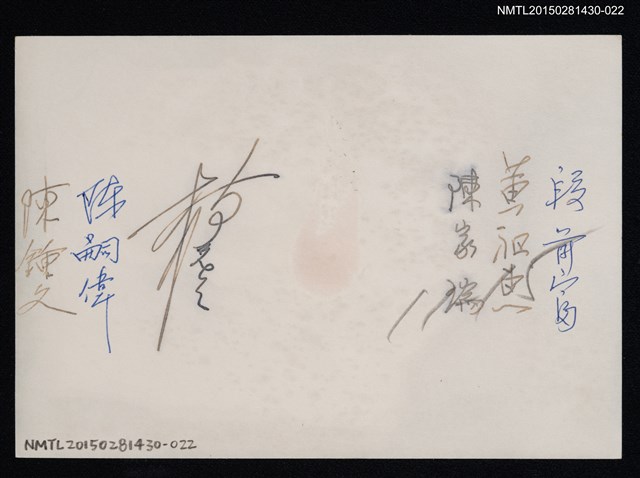 NMTL20150281430-022
段前富
黄祖惠
陳家瑞
陈嗣偉
陳鍾文
NMTL20150281430-022